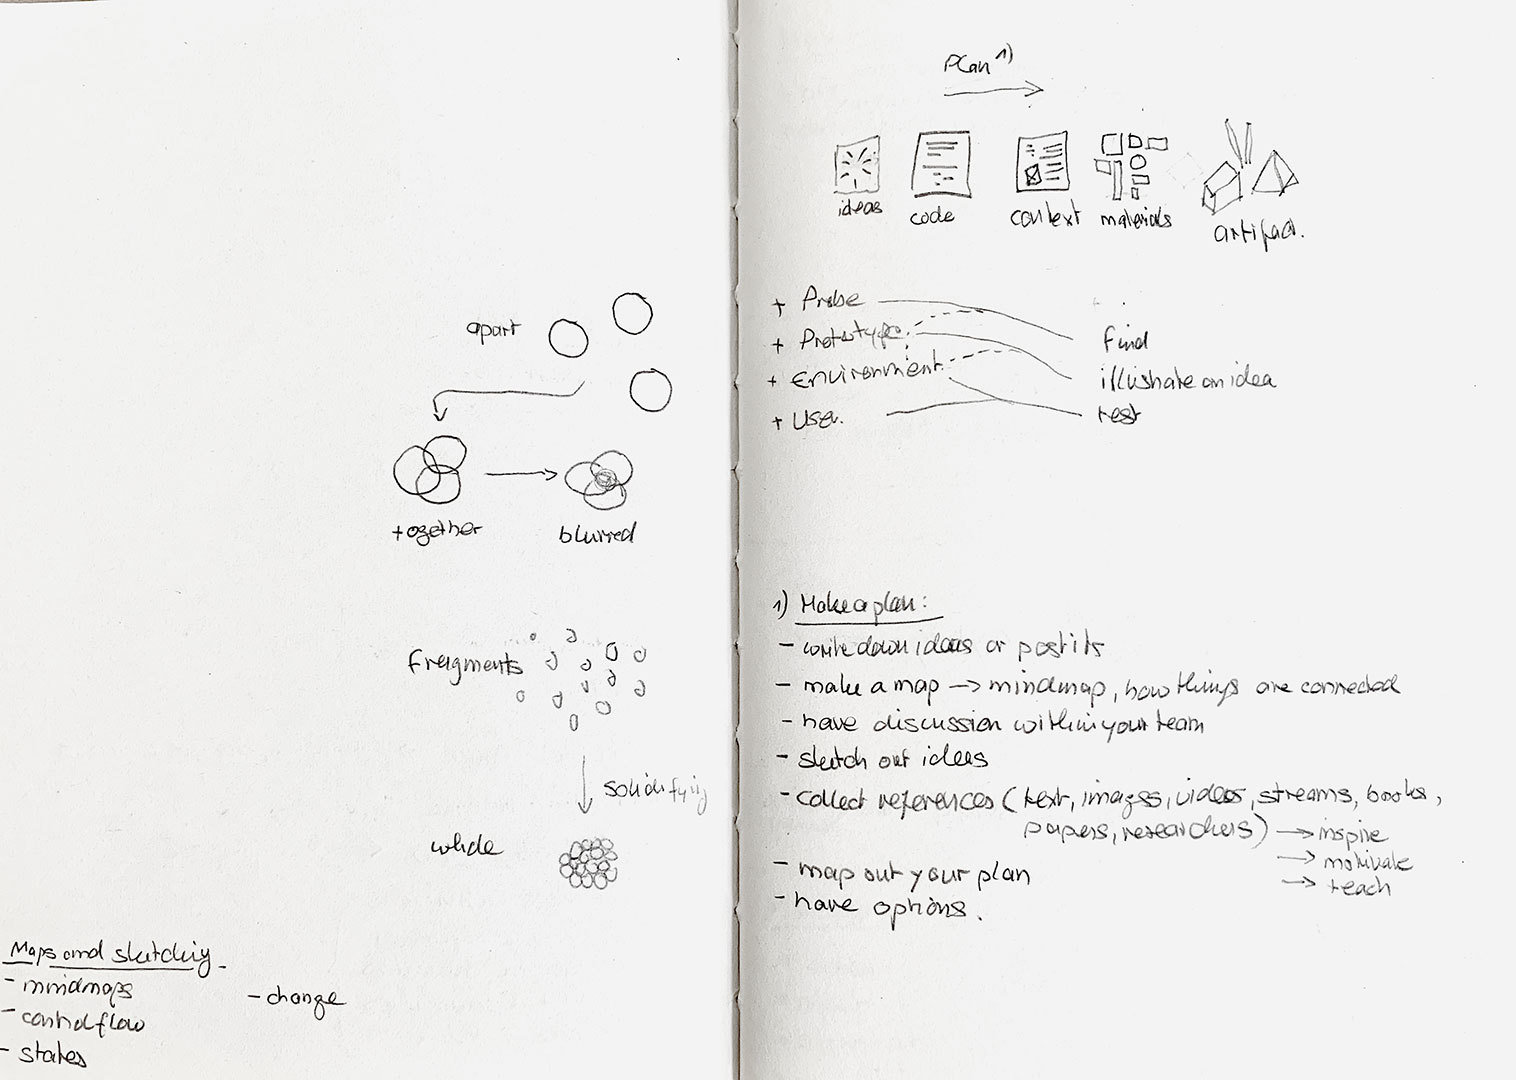 apart
together
blurred
fragments
solidifying
whole
Maps and sketching
- mindmaps
- change
- control flow
- states
Plan 1)
ideas
code
context
materials
artifact.
+ Probe
+ Prototype
+ Environment
+ User.
find
illustrate an idea
test
1) Make a plan:
- write down ideas or post its
- make a map → mindmap, how things are connected
- have discussion within your team
- sketch out ideas
- collect references (text, images, videos, streams, books,
papers, researchers) → inspire
→ motivate
→ teach
- map out your plan
- have options.